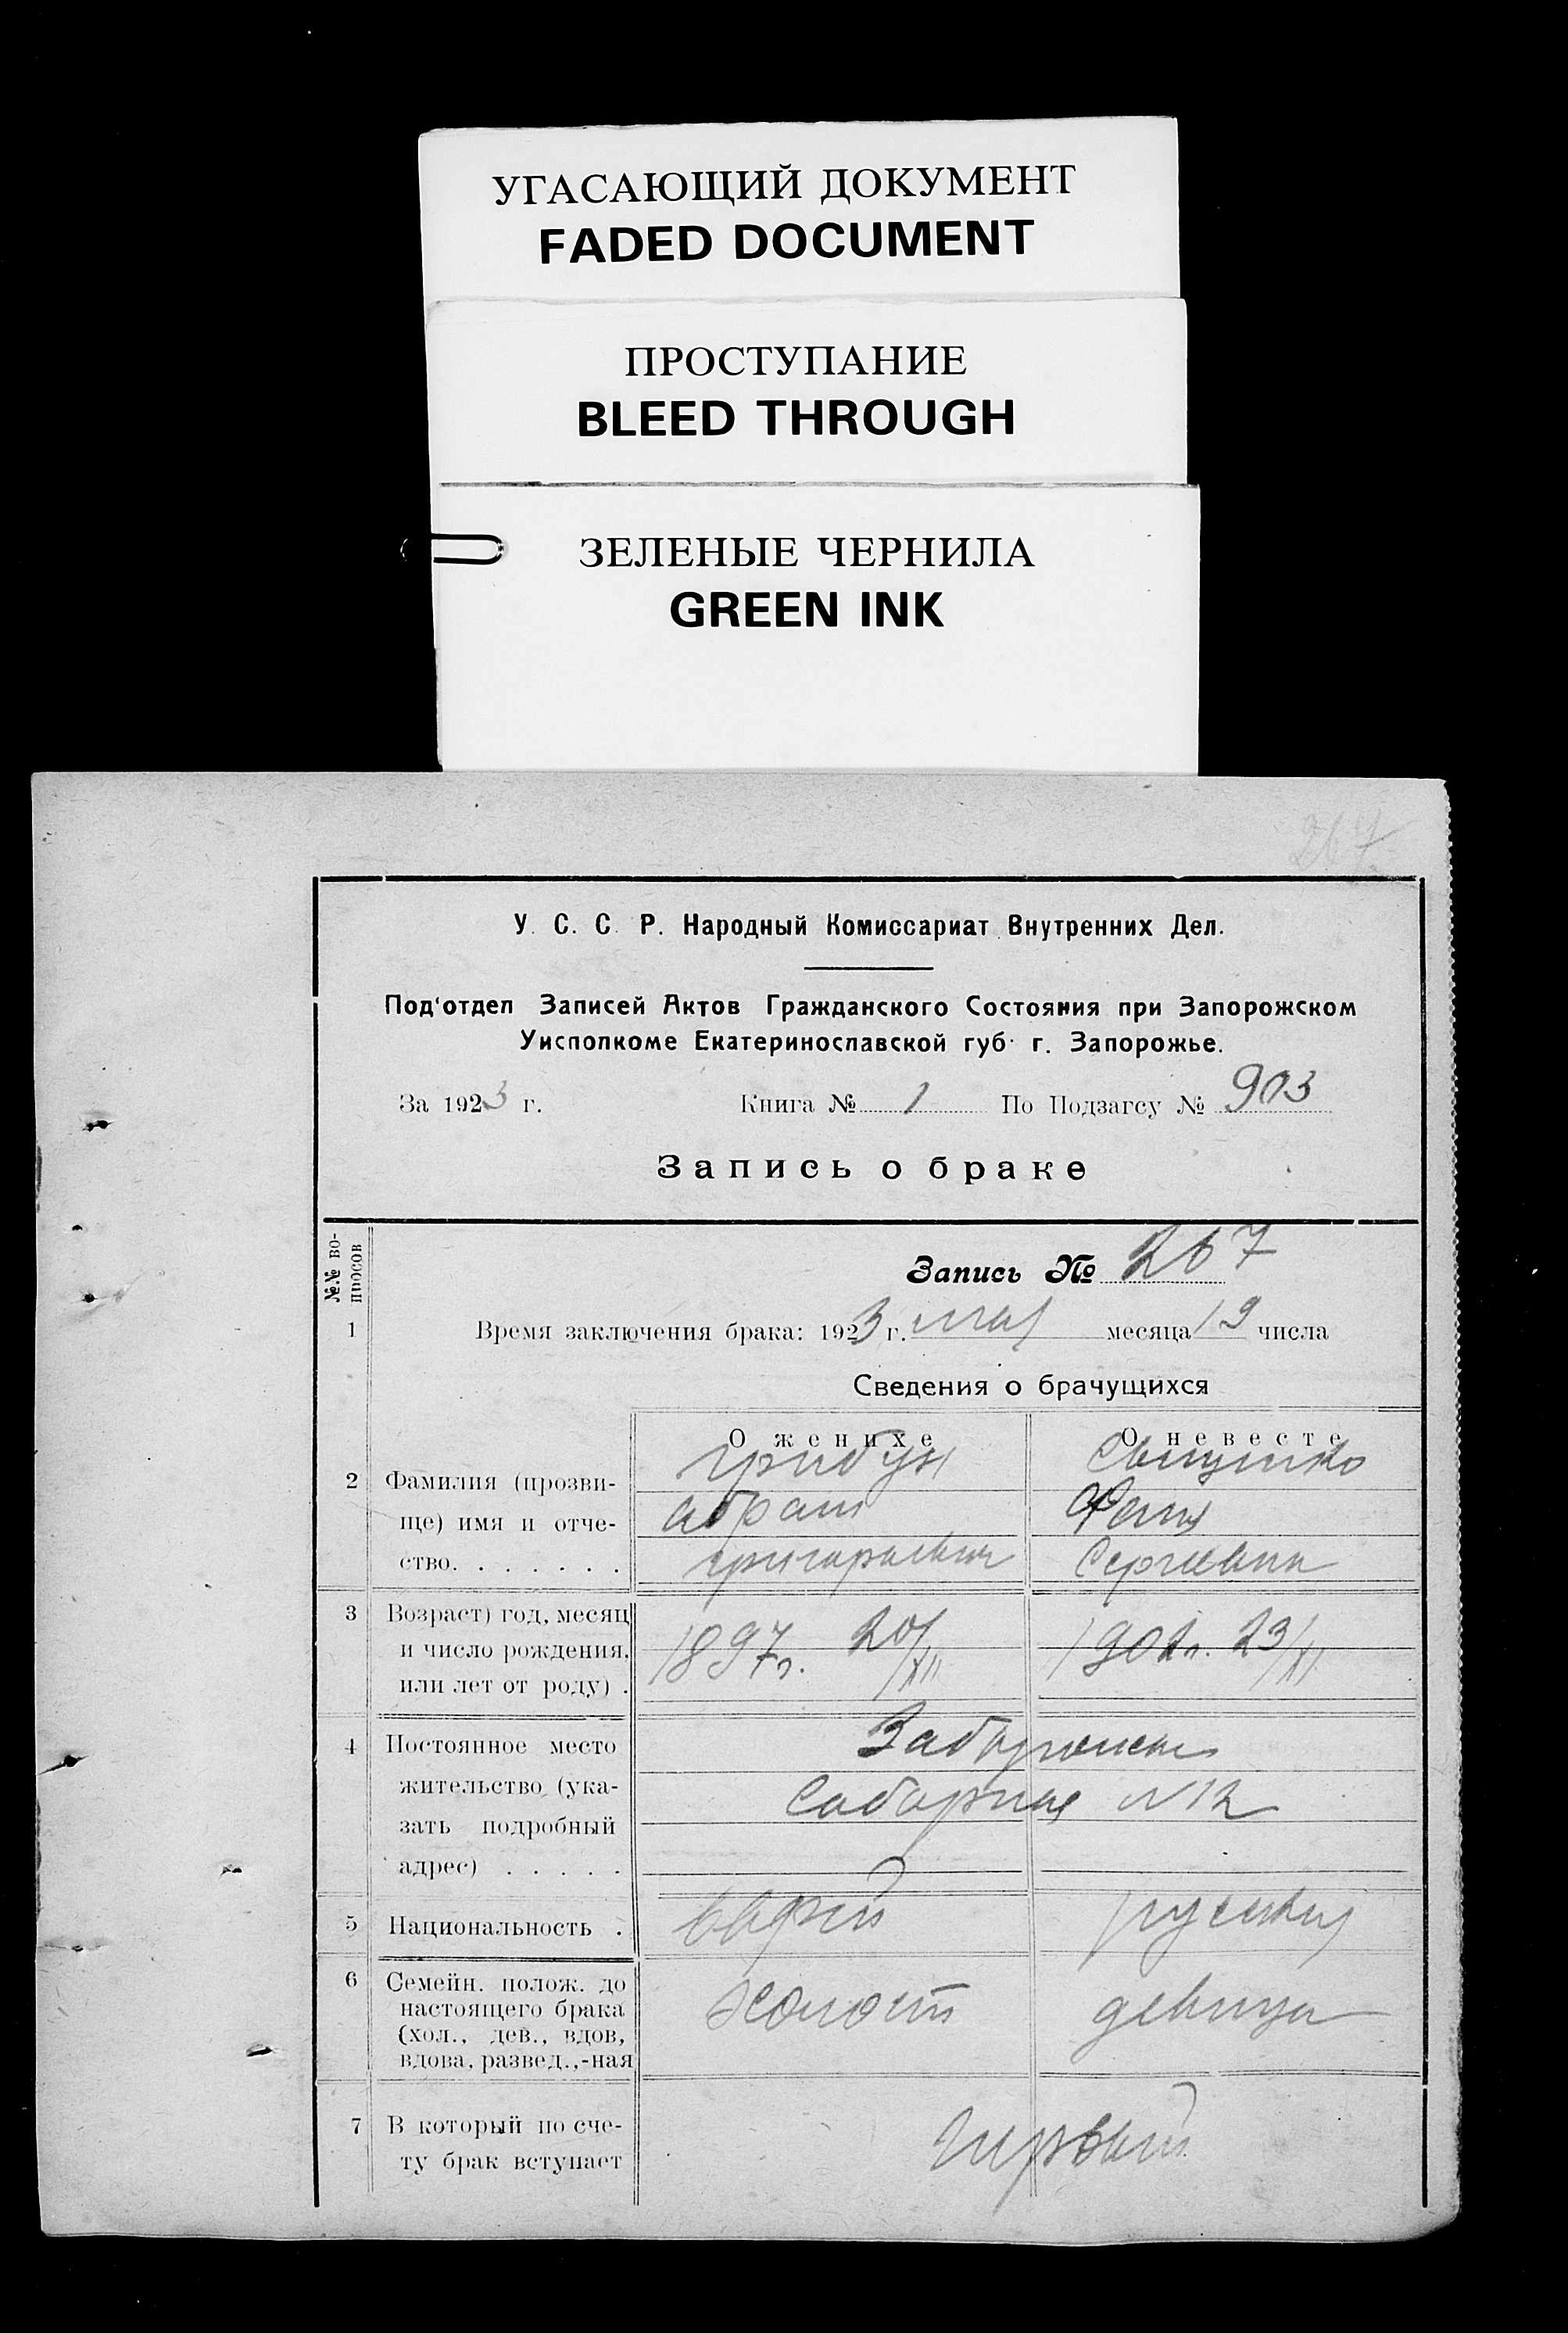 УГАСАЮЩИЙ ДОКУМЕНТ
FADED DOCUMENT
ПРОСТУПАНИЕ
BLEED THROUGH
ЗЕЛЕНЫЕ ЧЕРНИЛА
GREEN INK
267
У. С. С. Р. Народный Комиссариат Внутренних Дел.
Под'отдел Записей Актов Гражданского Состояния при Запорожском
Уисполкоме Екатеринославской губ. г. Запорожье.
За 1923 г. Книга № 1 По Подзагсу № 903
Запись о браке
№№ вопросов
Запись № 267
1 Время заключения брака: 1923 г. мая месяца 19 числа
Сведения о брачущихся
О женихе О невесте
2 Фамилия (прозви- Грибун
ще) имя и отче- Абрам Феня
ство. . . . . . . Григорьевич Сергеевна
3 Возраст) год, месяц
и число рождения, 1897г. 20/XII 1901г. 23/XI
или лет от роду) .
4 Постоянное место
жительство (ука- Соборная N12
зать подробный
адрес) . . . . .
5 Национальность . еврей русская
6 Семейн. полож. до
настоящего брака холост девица
(хол., дев., вдов,
вдова, развед.,-ная
7 В который по сче- первый
ту брак вступает